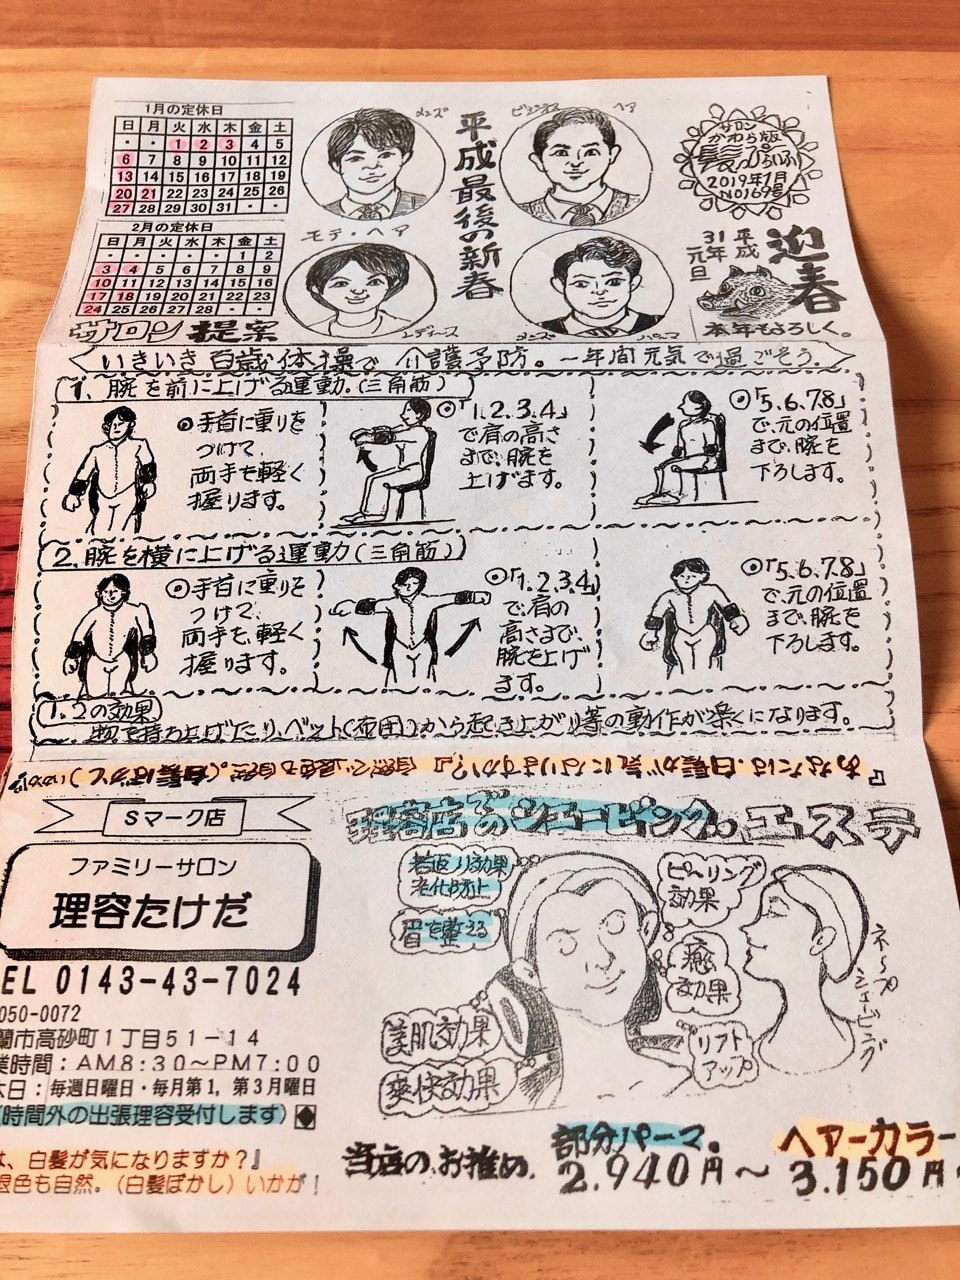 1月の定休日
日 月 火 水 木 金 土
・ ・ 1 2 3 4 5
6 7 8 9 10 11 12
13 14 15 16 17 18 19
20 21 22 23 24 25 26
27 28 29 30 31 ・ ・
2月の定休日
日 月 火 水 木 金 土
・ ・ ・ ・ ・ 1 2
3 4 5 6 7 8 9
10 11 12 13 14 15 16
17 18 19 20 21 22 23
24 25 26 27 28 ・ ・
メンズ
ビジネス ヘア
モテ・ヘア
レディース
メンズ パーマ
平成最後の新春
サロン
かわら版
2019年1月
NO169号
迎春
平成
31年
元旦
本年もよろしく。
サロン提案
いきいき百歳体操で介護予防。一年間元気で過ごそう。
1、腕を前に上げる運動。(三角筋)
◎手首に重りを
つけて、
両手を軽く
握ります。
◎「1.2.3.4」
で肩の高さ
まで、腕を
上げます。
◎「5.6.7.8」
で、元の位置
まで、腕を
下ろします。
2.腕を横に上げる運動(三角筋)
◎手首に重りを
つけて、
両手を、軽く
握ります。
◎「1.2.3.4」
で、肩の
高さまで、
腕を上げ
ます。
◎「5.6.7.8」
で、元の位置
まで、腕を
下ろします。
1.2の効果
物を持ち上げたり、ベット(布団)から起き上がり等の動作が楽くになります。
『あなたは、白髪が気になりますか?』自然で、退色も自然。(白髪ぼかし)
Sマーク店
ファミリーサロン
理容たけだ
EL 0143-43-7024
050-0072
蘭市高砂町1丁目51-14
業時間:AM8:30～PM7:00
木日:毎週日曜日・毎月第1,第3月曜日
時間外の出張理容受付します)◆
は、白髪が気になりますか?』
退色も自然。(白髪ぼかし)いかが!
理容店でのシェービング。エステ
若返り効果
老化防止
眉を整える
美肌効果
爽快効果
ピーリング
効果
癒し
効果
リフト
アップ
ネープ
シェービング
当店の、お推め、
部分パーマ。
2.940円～
ヘアーカラー
3.150円